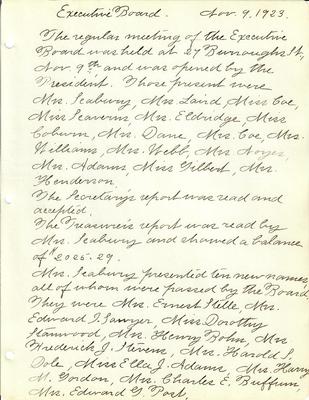 Executive Board. Nov. 9, 1923.
The regular meeting of the Executive
Board was held at 27 Burroughs St.,
Nov 9th and was opened by the
President. Those present were
Mrs. Seabury, Mrs Laird, Miss Coe,
Miss Mrs. Eldridge Miss
Coburn, Mrs. Dane, Mrs. Coe, Mrs.
Williams, Mrs. Webb, Mrs Noyes,
Mrs. Adams, Miss Gilbert, Mrs.
Henderson.
The Secretary's report was read and
accepted.
The Treasurer's report was read by
Mrs. Seabury and showed a balance
of $2025.29.
Mrs. Seabury presented ten new names,
all of whom were passed by the Board.
They were Mrs. Ernest Mrs.
Edward I. Sawyer, Miss Dorothy
Stanwood, Mrs. Henry Mrs
Frederick J. Stevens, Mrs. Harold S.
Dole, Miss Ella J. Adams, Mrs. Harry
M. Gordon, Mrs. Charles E. Buffum,
Mrs. Edward G.